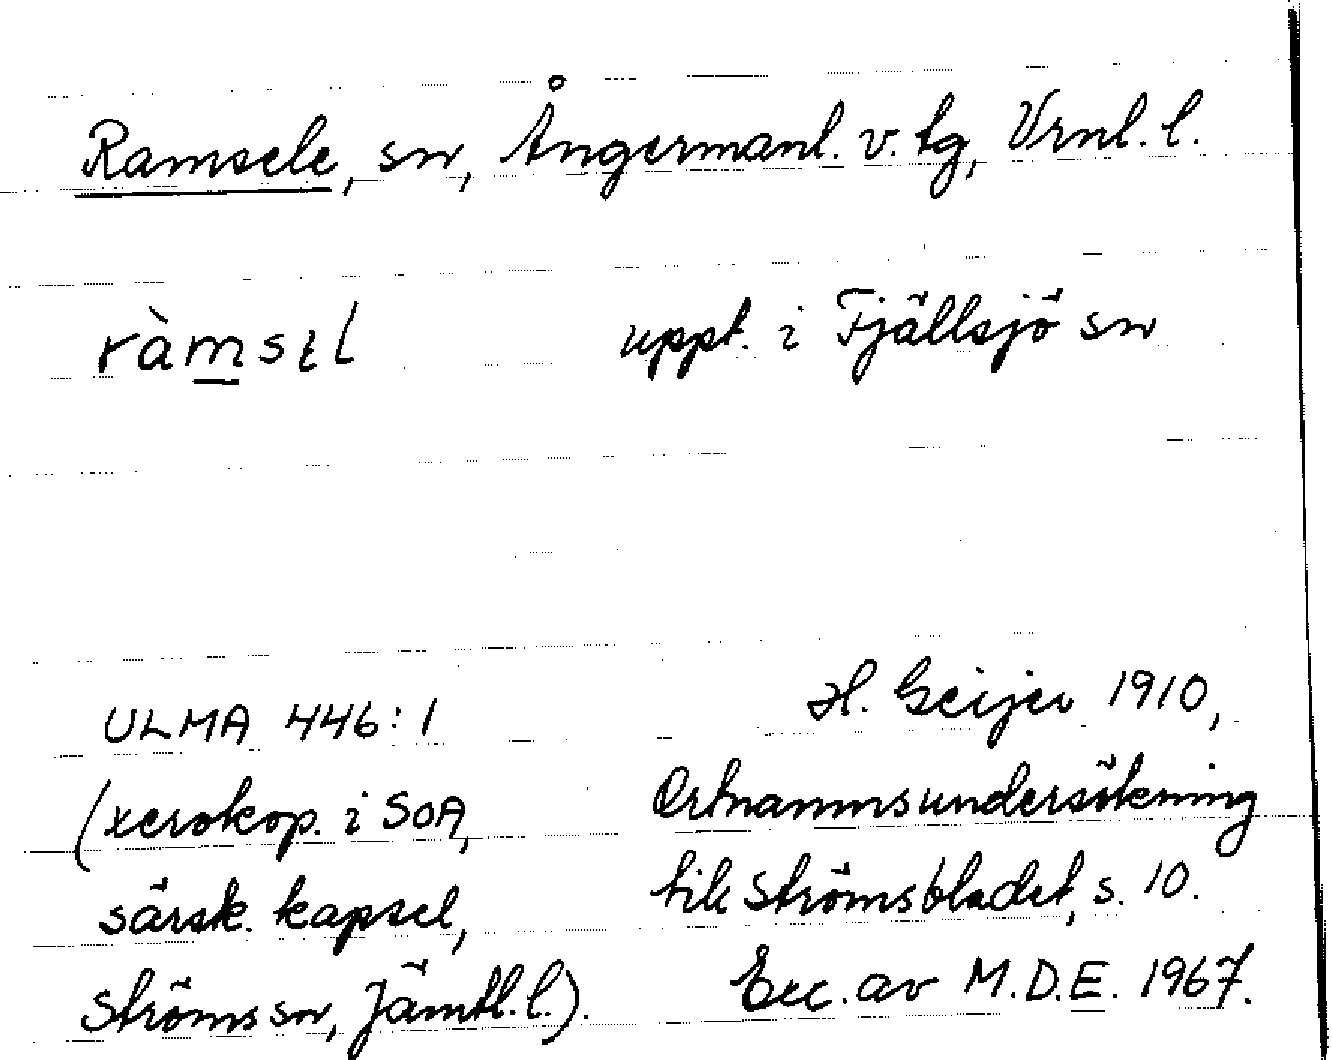 Ramsele, sn, Ångermanl. v. tg, Vrnl. l.
ràmsıl uppt. i Fjällsjö sn
ULMA 446:1 H. Geijer 1910,
(xerokop. i SOA, Ortnamnsundersökning
särsk. kapsel, till Strömsbladet, s. 10.
Ströms sn, Jämtl. l.). Exc. av M.D.E. 1967.